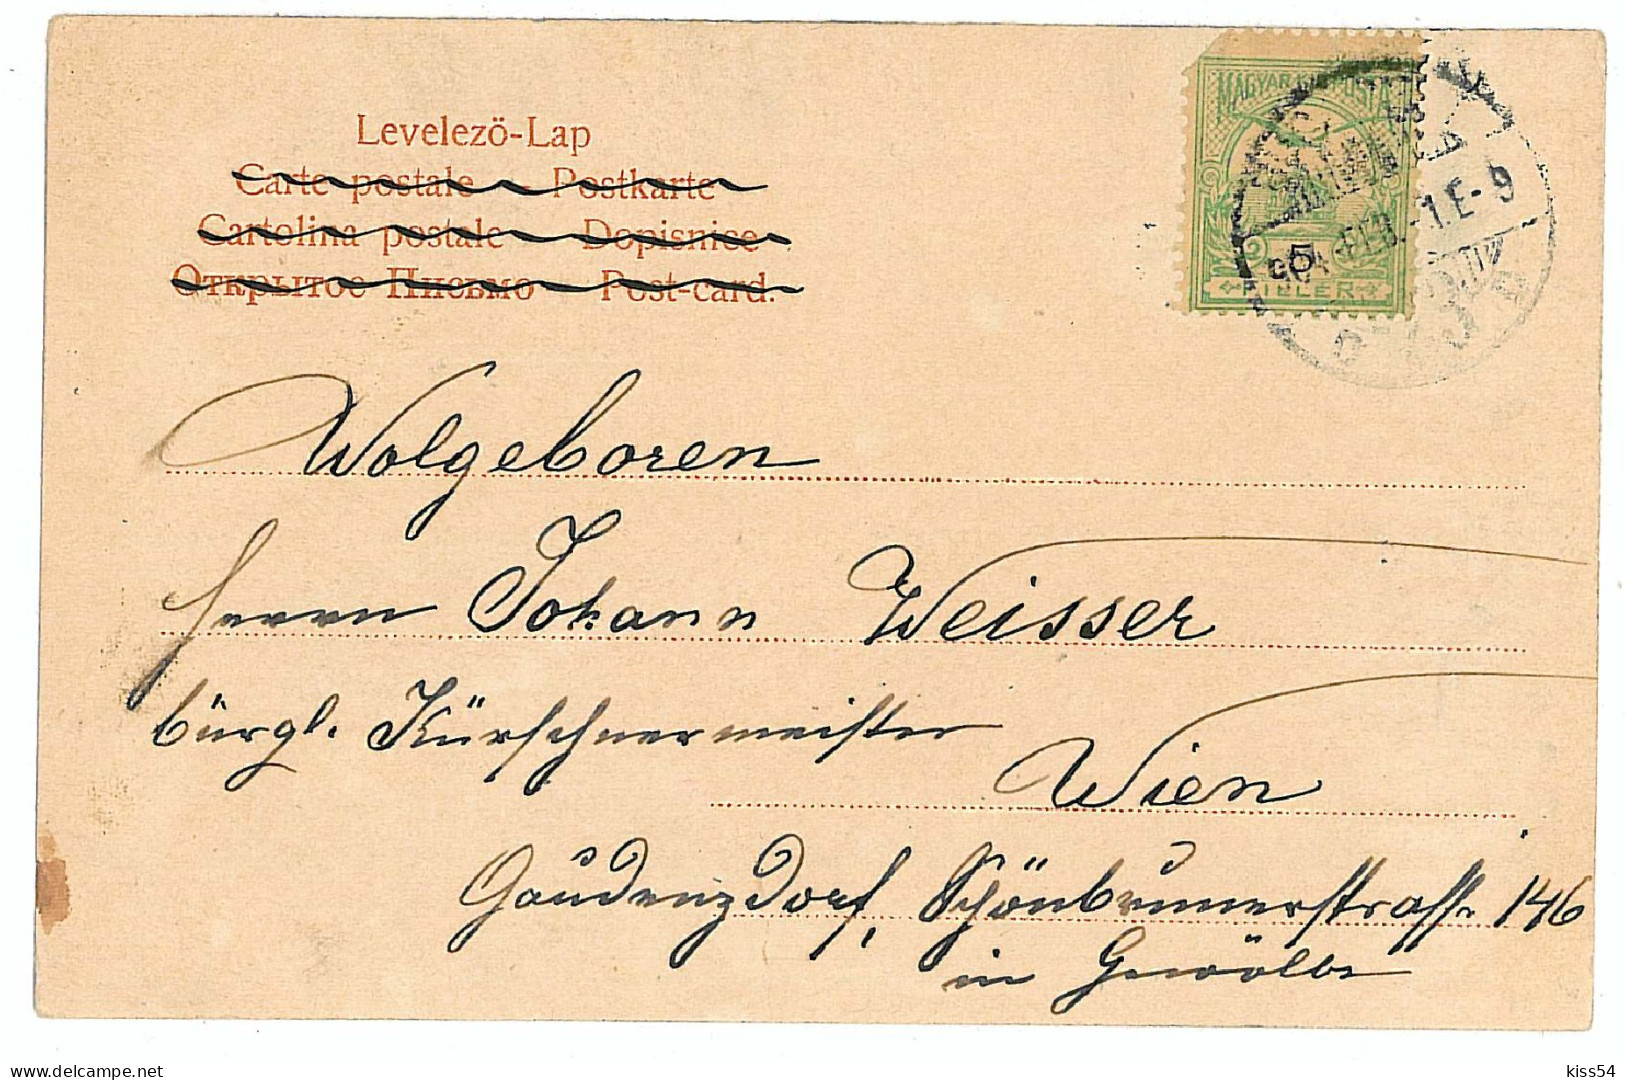 Levelező-Lap
Carte postale – Postkarte
Cartolina postale – Dopisnice
Открытое Письмо – Post-card.
MAGYAR KIR. POSTA
5
FILLER
Wolgeboren
Herrn Johann Weisser
bürgl. Kürschnermeister
Wien
Gaudenzdorf, Schönbrunnerstrasse 146
in Gewölbe
kiss54